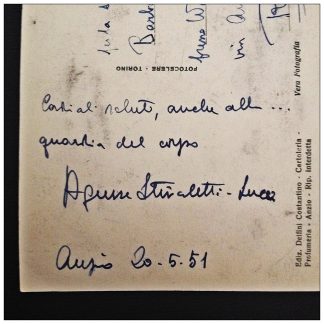 Barb
FOTOCELERE - TORINO
Vera Fotografia
Cordiali saluti, anche alla ...
guardia del corpo
Agnese Stivaletti - Lucca
Anzio 20-5-51
Ediz. Delfini Costantino - Cartoleria -
Profumeria - Anzio - Rip. interdetta